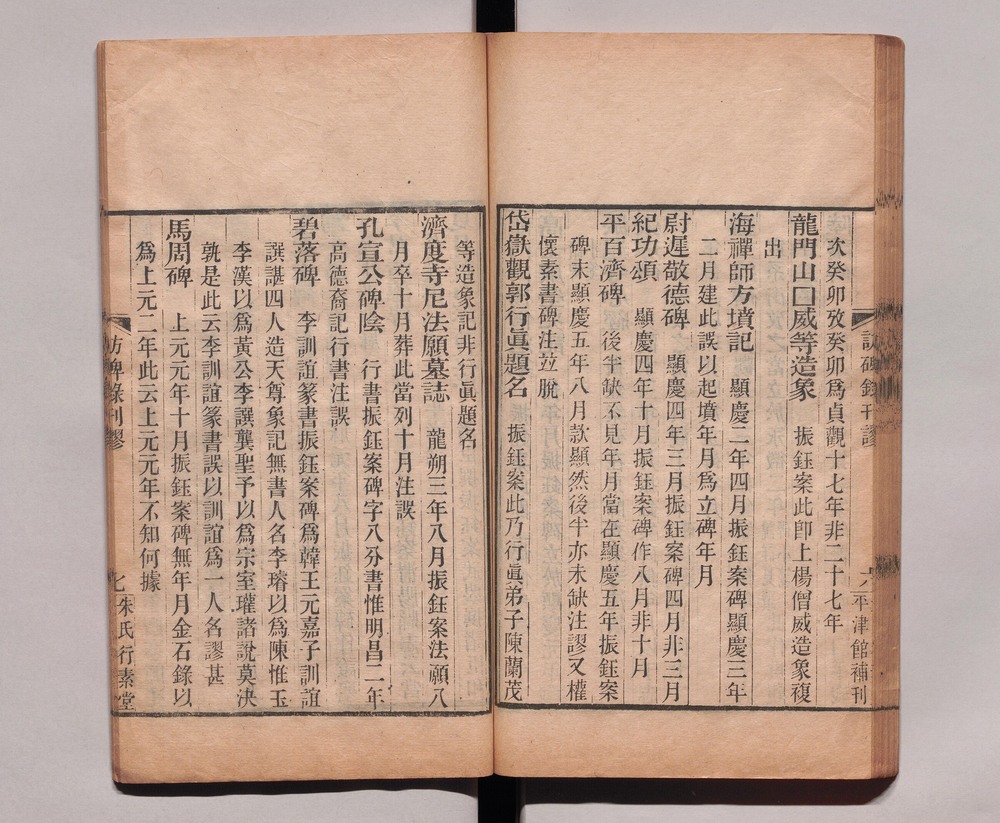 次癸卯攷癸卯爲貞觀十七年非二十七年
龍門山口威等造象 振鈺案此卽上楊僧威造象複
出
海禪師方墳記 顯慶二年四月振鈺案碑顯慶三年
二月建此誤以起墳年月爲立碑年月
尉遲敬德碑 顯慶四年三月振鈺案碑四月非三月
紀功頌 顯慶四年十月振鈺案碑作八月非十月
平百濟碑 後半缺不見年月當在顯慶五年振鈺案
碑末顯慶五年八月款顯然後半亦未缺注謬又權
懷素書碑注竝脫
岱嶽觀郭行眞題名 振鈺案此乃行眞弟子陳蘭茂
訪碑錄刊謬
六
平津館補刊
等造象記非行眞題名
濟度寺尼法願墓誌 龍朔三年八月振鈺案法願八
月卒十月葬此當列十月注誤
孔宣公碑陰 行書振鈺案碑字八分書惟明昌二年
高德裔記行書注誤
碧落碑 李訓誼篆書振鈺案碑爲韓王元嘉子訓誼
譔諶四人造天尊象記無書人名李璿以爲陳惟玉
李漢以爲黃公李譔龔聖予以爲宗室瓘諸說莫決
孰是此云李訓誼篆書誤以訓誼爲一人名謬甚
馬周碑 上元元年十月振鈺案碑無年月金石錄以
爲上元二年此云上元元年不知何據
訪碑錄刊謬
七
朱氏行素堂